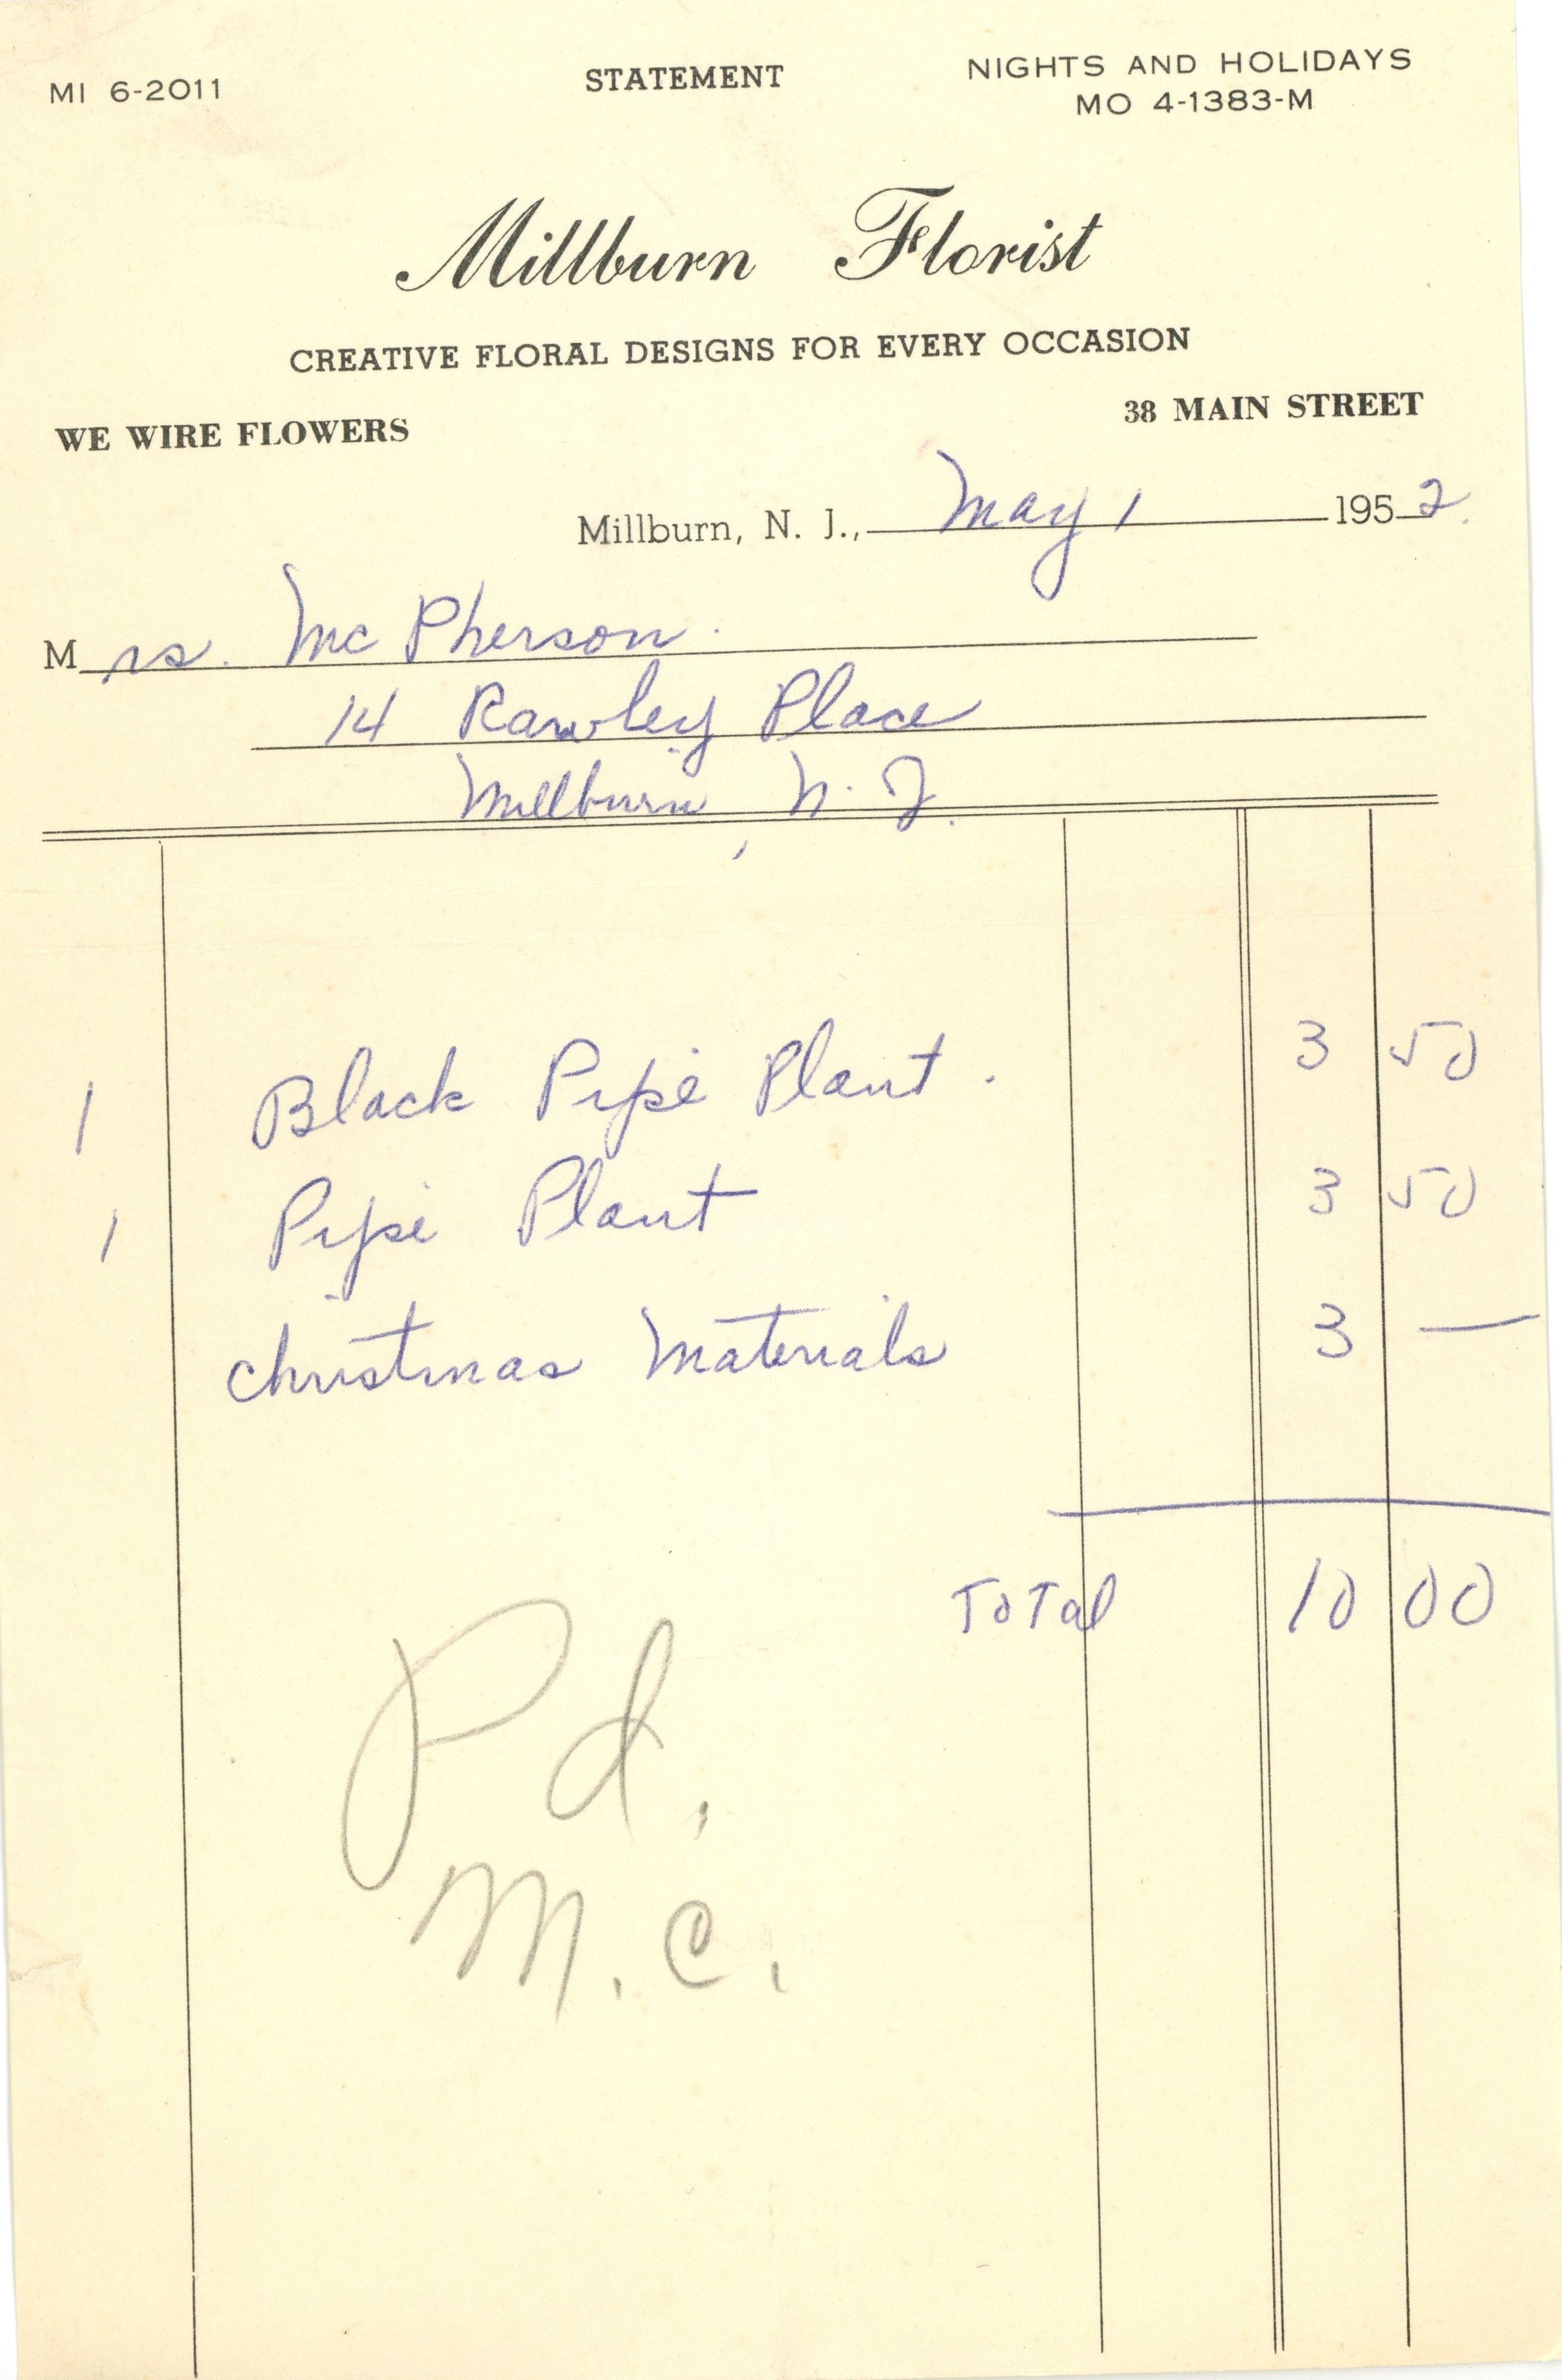 MI 6-2011 STATEMENT NIGHTS AND HOLIDAYS
MO 4-1383-M
Millburn Florist
CREATIVE FLORAL DESIGNS FOR EVERY OCCASION
WE WIRE FLOWERS 38 MAIN STREET
Millburn, N. J., May 1 1952.
Mrs. McPherson.
14 Rawley Place
Millburn, N. J.
1 Black Pipe Plant. 3 50
1 Pipe Plant 3 50
Christmas Materials 3 —
Total 10 00
Pd.
M.C.